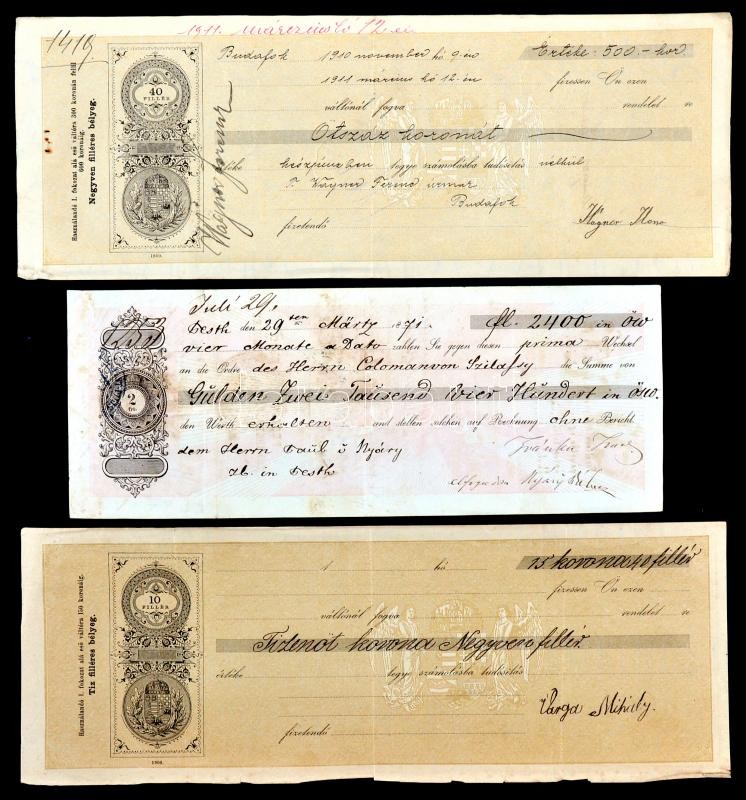 1419
1911. március hó 12-én
Budafok 1910 november hó 9-én Értéke: 500.- kor
1911 március hó 12-én fizessen Ön ezen
váltónál fogva rendelet re
Ötszáz koronát
értéke készpénzben tegye számolásba tudósítás nélkül
T. Wágner Ferenc urnak
Budafok
fizetendő
Wágner Ferenc
40
FILLÉR
1909.
Használandó I. fokozat alá eső váltóra 300 koronán felül
600 koronáig.
Negyven filléres bélyeg.
Juli 29.
Pesth den 29ten Märtz 1871. fl. 2400 in öW
vier Monate a Dato zahlen Sie gegen diesen prima Wechsel
an die Ordre des Herrn Coloman von Szilassy die Summe von
Gulden Zwei Tausend Vier Hundert in öW.
den Werth erhalten und stellen solchen auf Rechnung ohne Bericht
dem Herrn Paul v Nyáry
in Pesth
2
1 hó 15 korona 40 fillér
fizessen Ön ezen
váltónál fogva rendelet re
Tizenöt korona Negyven fillér.
értéke tegye számolásba tudósítás
Varga Mihály.
fizetendő
10
FILLÉR
Használandó I. fokozat alá eső váltóra 150 koronáig.
Tiz filléres bélyeg.